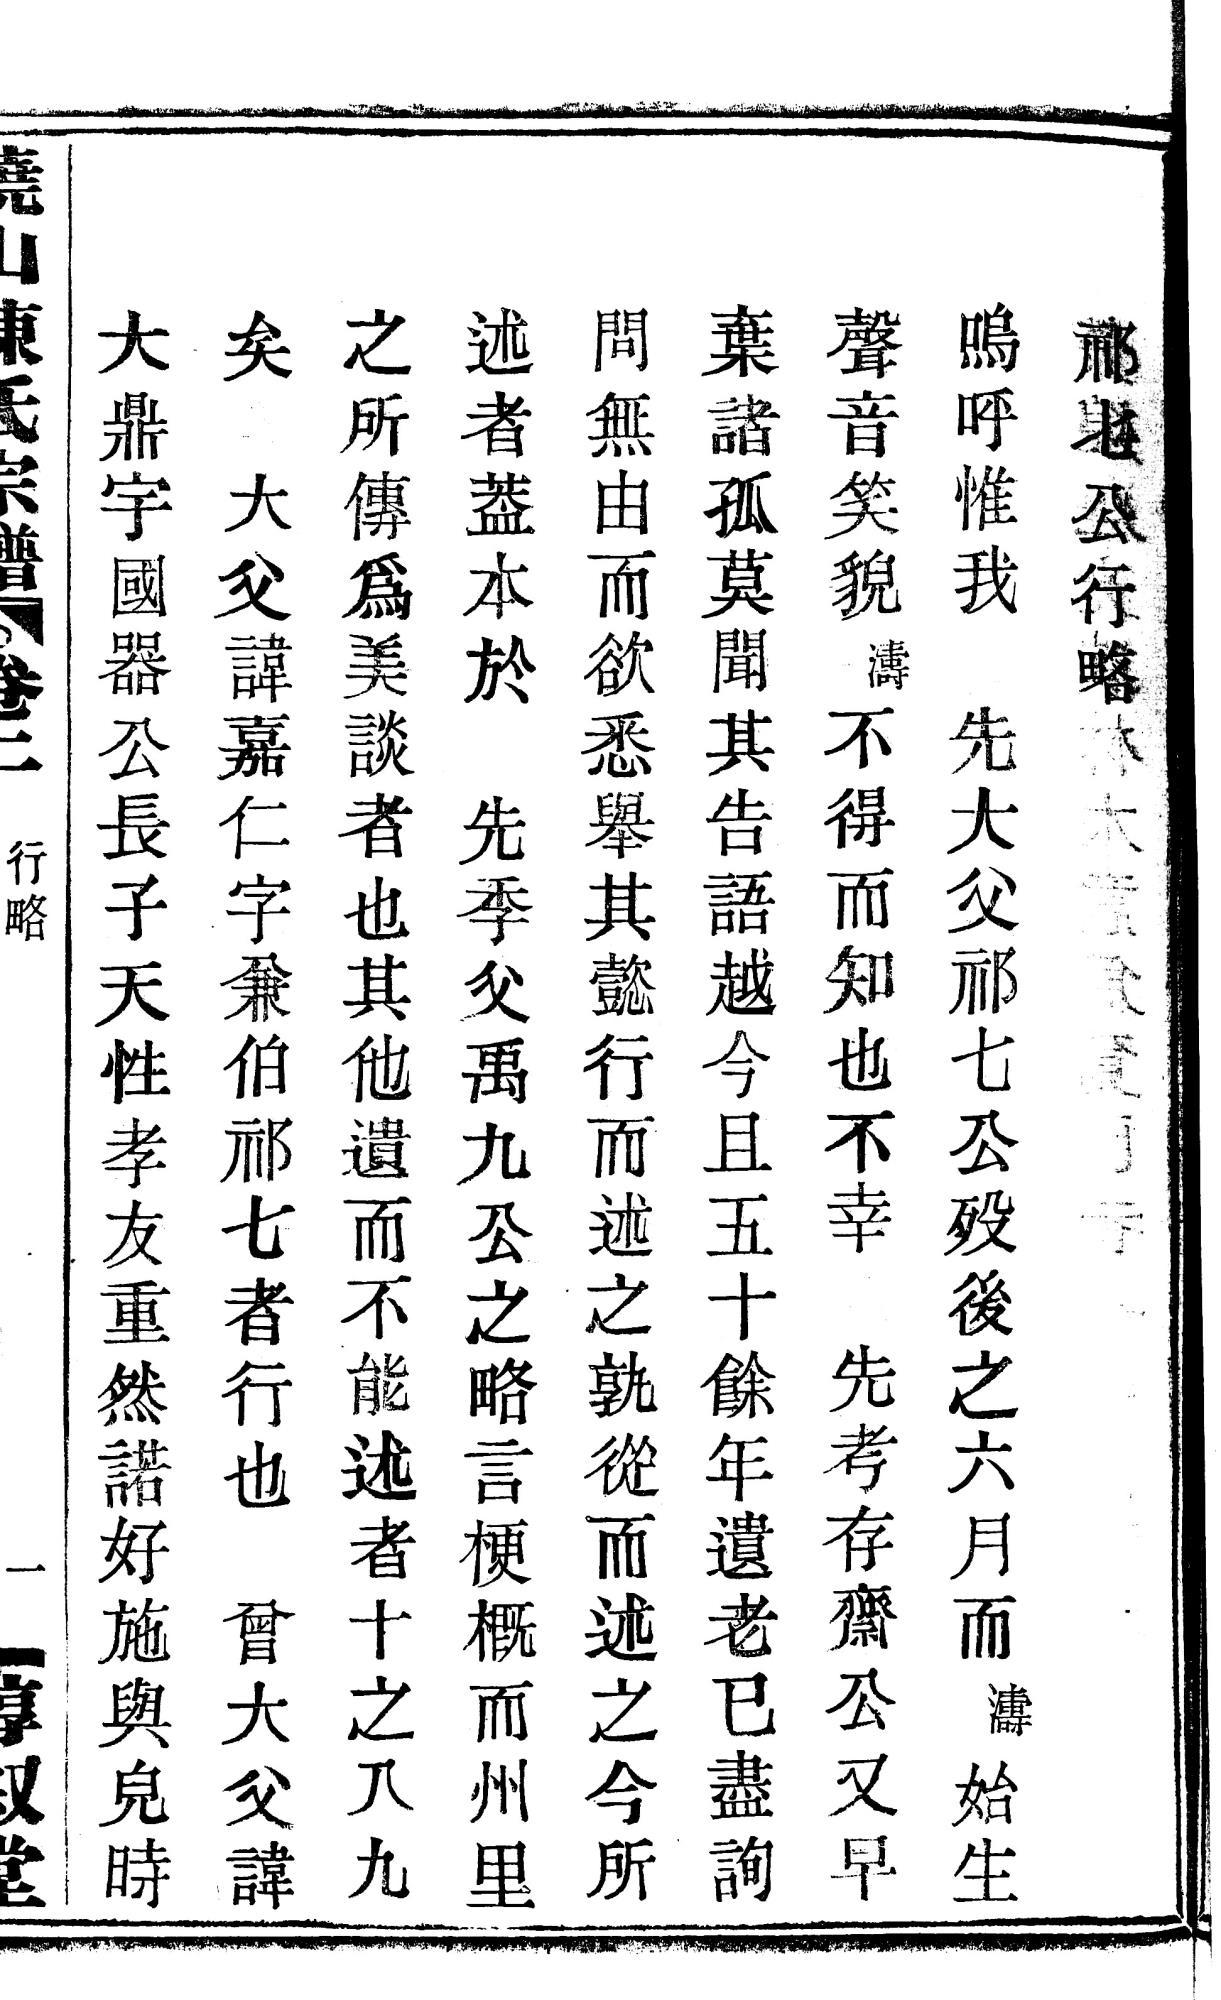 祁七公行略
嗚呼惟我　先大父祁七公歿後之六月而濤始生
聲音笑貌濤不得而知也不幸　先考存齋公又早
棄諸孤莫聞其告語越今且五十餘年遺老已盡詢
問無由而欲悉舉其懿行而述之孰從而述之今所
述者蓋本於　先季父禹九公之略言梗概而州里
之所傳爲美談者也其他遺而不能述者十之八九
矣　大父諱嘉仁字兼伯祁七者行也　曾大父諱
大鼎字國器公長子天性孝友重然諾好施與皃時
堯山陳氏宗譜　卷二　行略　一　惇叙堂